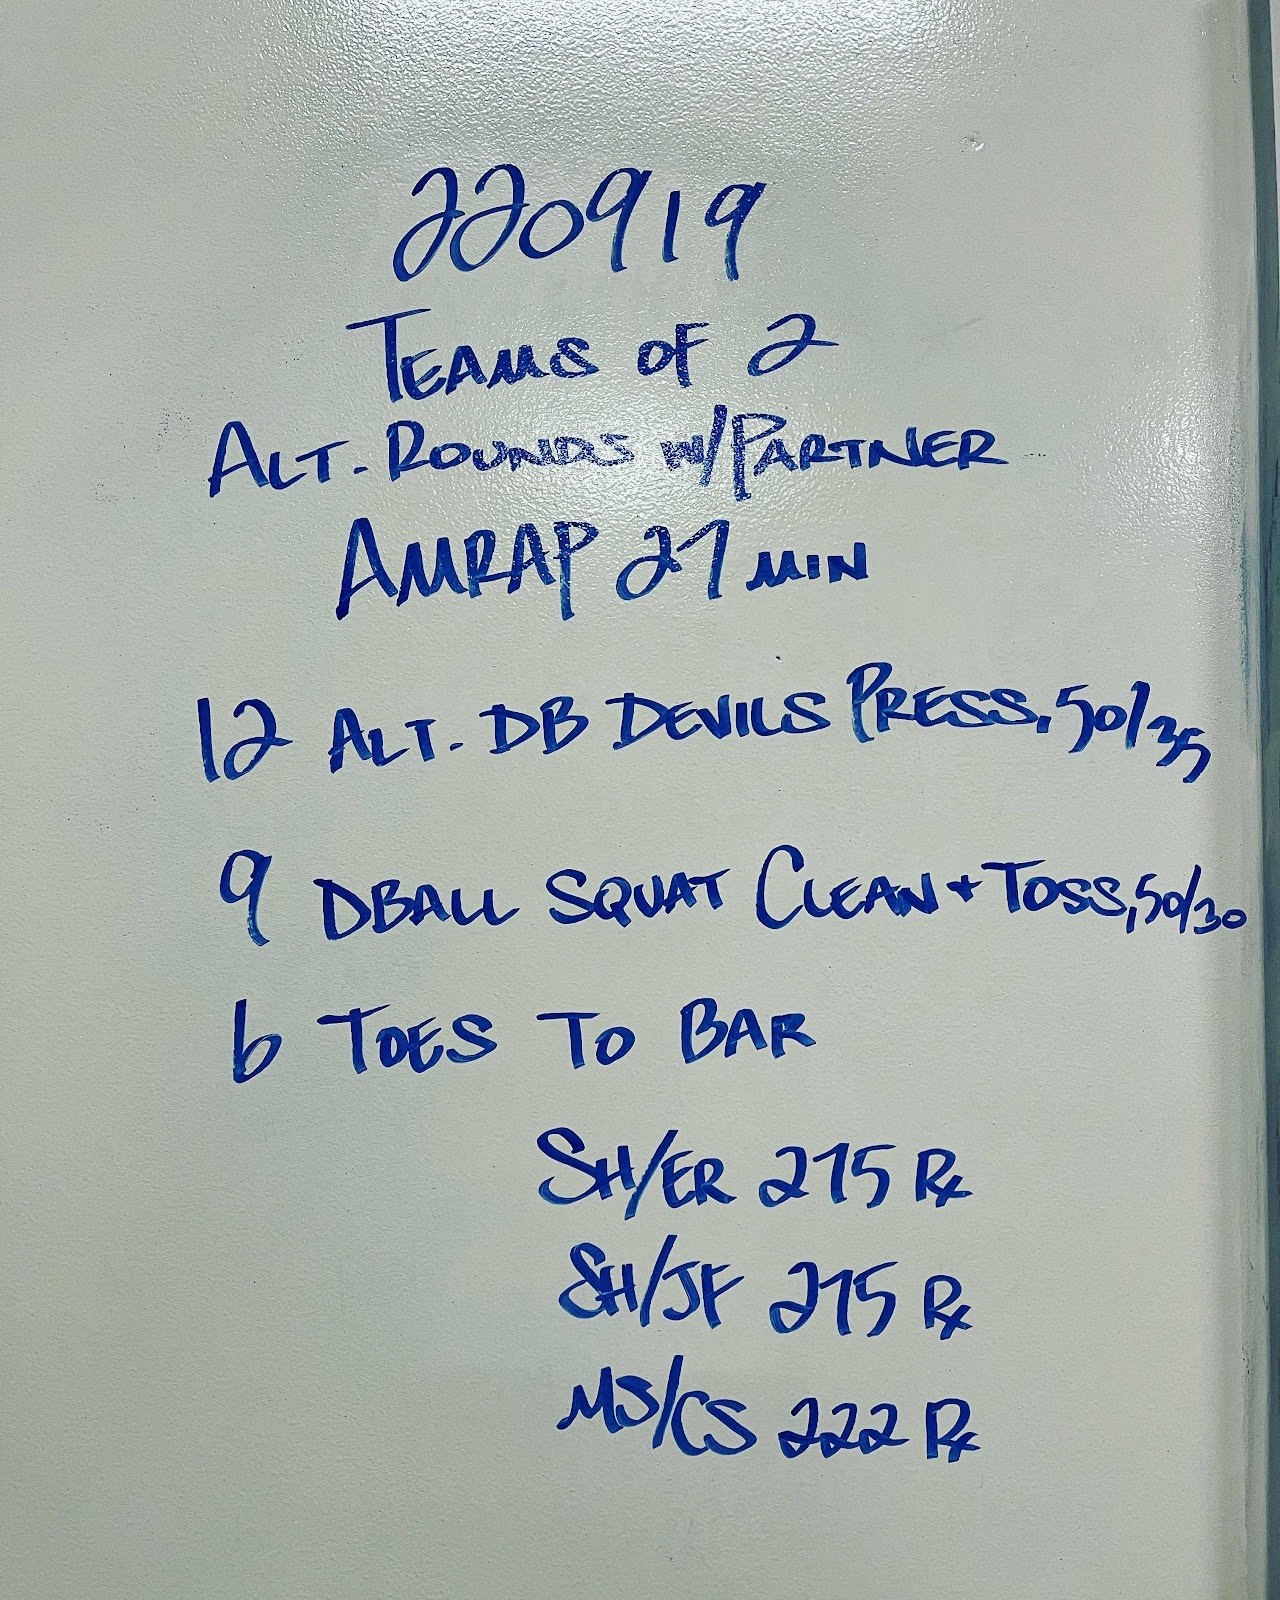 220919
TEAMS OF 2
ALT. ROUNDS W/PARTNER
AMRAP 27 MIN
12 ALT. DB DEVILS PRESS, 50/35
9 DBALL SQUAT CLEAN + TOSS, 50/30
6 TOES TO BAR
SH/ER 275 Rx
SH/JF 275 Rx
MS/CS 222 Rx